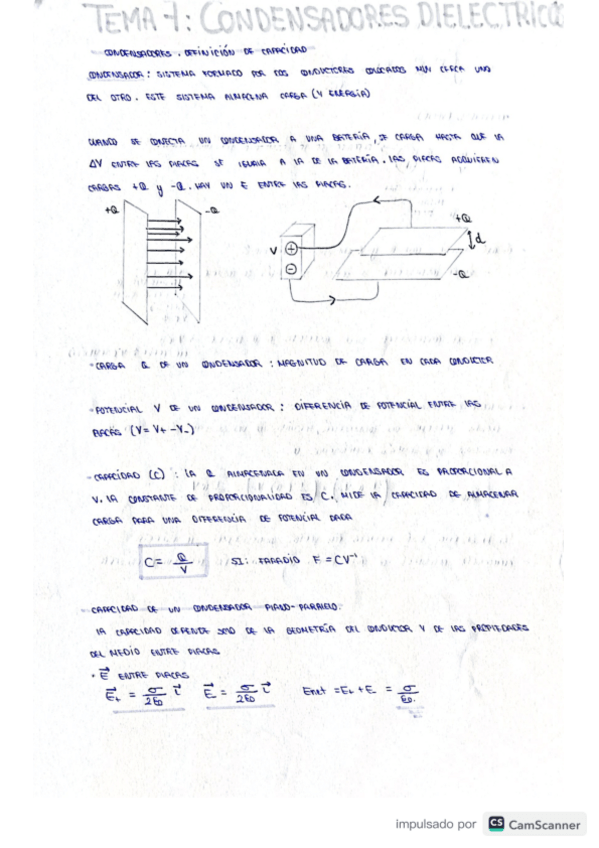 TEMA 7: CONDENSADORES DIELECTRICO
CONDENSADORES. DEFINICIÓN DE CAPACIDAD
CONDENSADOR: SISTEMA FORMADO POR DOS CONDUCTORES COLOCADOS MUY CERCA UNO
DEL OTRO. ESTE SISTEMA ALMACENA CARGA (Y ENERGÍA)
CUANDO SE CONECTA UN CONDENSADOR A UNA BATERÍA, SE CARGA HASTA QUE LA
ΔV ENTRE LAS PLACAS SE IGUALA A LA DE LA BATERÍA. LAS PLACAS ADQUIEREN
CARGAS +Q y -Q. HAY UN E ENTRE LAS PLACAS.
+Q -Q
V + - +Q d -Q
· CARGA Q DE UN CONDENSADOR: MAGNITUD DE CARGA EN CADA CONDUCTOR
· POTENCIAL V DE UN CONDENSADOR: DIFERENCIA DE POTENCIAL ENTRE LAS
PLACAS (V= V+ - V-)
- CAPACIDAD (C): LA Q ALMACENADA EN UN CONDENSADOR ES PROPORCIONAL A
V. LA CONSTANTE DE PROPORCIONALIDAD ES C. MIDE LA CAPACIDAD DE ALMACENAR
CARGA PARA UNA DIFERENCIA DE POTENCIAL DADA
C = Q/V SI: FARADIO F = CV⁻¹
- CAPACIDAD DE UN CONDENSADOR PLANO-PARALELO:
LA CAPACIDAD DEPENDE SOLO DE LA GEOMETRÍA DEL CONDUCTOR Y DE LAS PROPIEDADES
DEL MEDIO ENTRE PLACAS
· E⃗ ENTRE PLACAS
E⃗+ = σ/2ε0 i⃗ E⃗- = σ/2ε0 i⃗ Enet = E+ + E- = σ/ε0.
impulsado por CS CamScanner